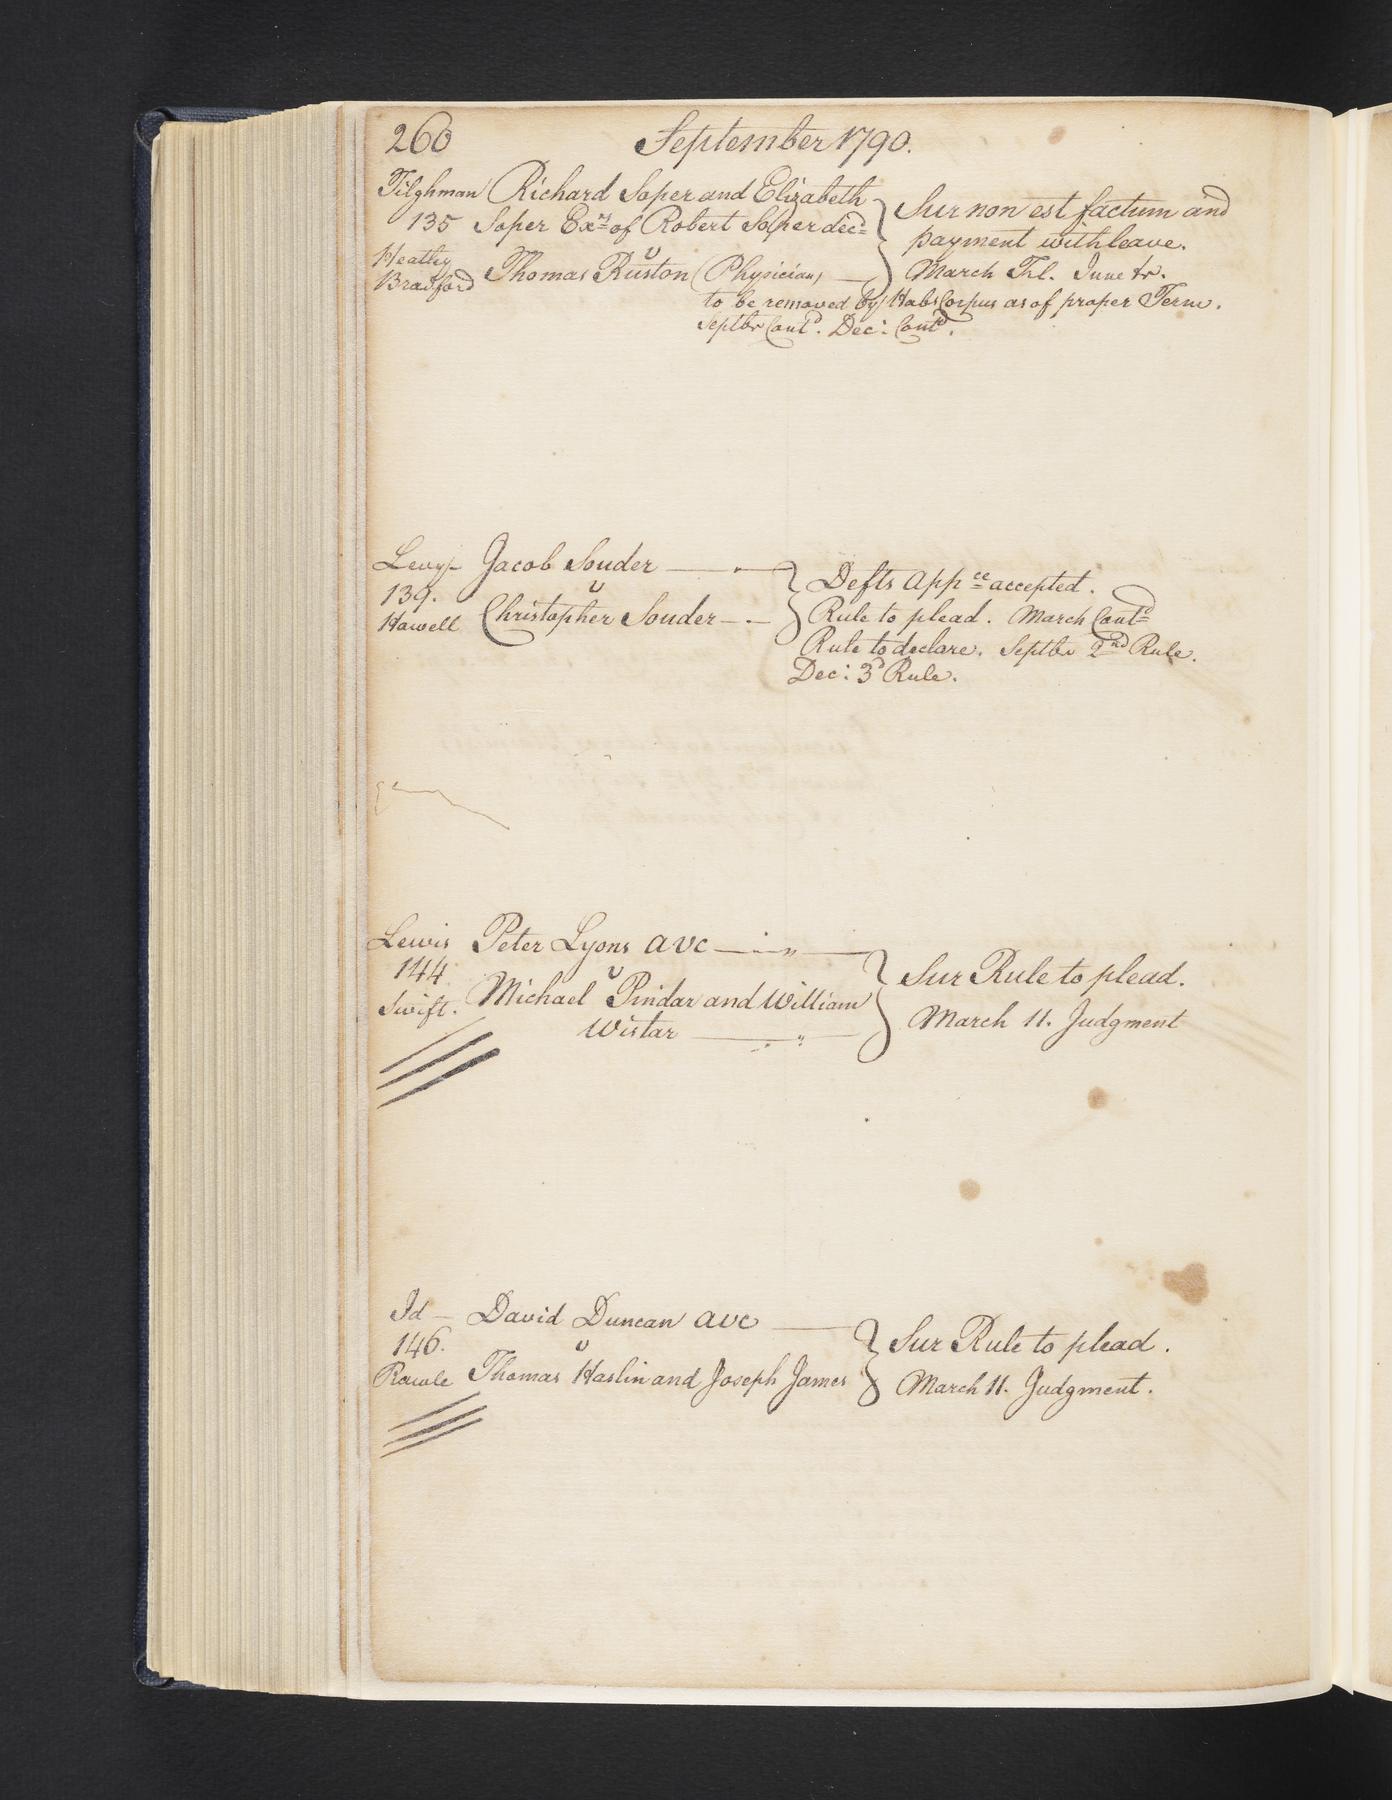 260 September 1790.
Tilghman Richard Soper and Elizabeth
135 Soper Exrs of Robert Soper decd
v
Heatly
Bradford Thomas Ruston (Physician)
Sur non est factum and
payment with leave.
March Trl. June tr.
to be removed by Habs Corpus as of proper Term.
Septbr Contd. Dec: Contd.
Levy Jacob Souder
139. v
Howell Christopher Souder
Defts appce accepted.
Rule to plead. March Contd
Rule to declare. Septbr 2nd Rule.
Dec: 3d Rule.
Lewis Peter Lyons avc
144 v
Swift. Michael Pindar and William
Wistar
Sur Rule to plead.
March 11. Judgment
Id David Duncan avc
146. v
Rawle Thomas Haslin and Joseph James
Sur Rule to plead.
March 11. Judgment.